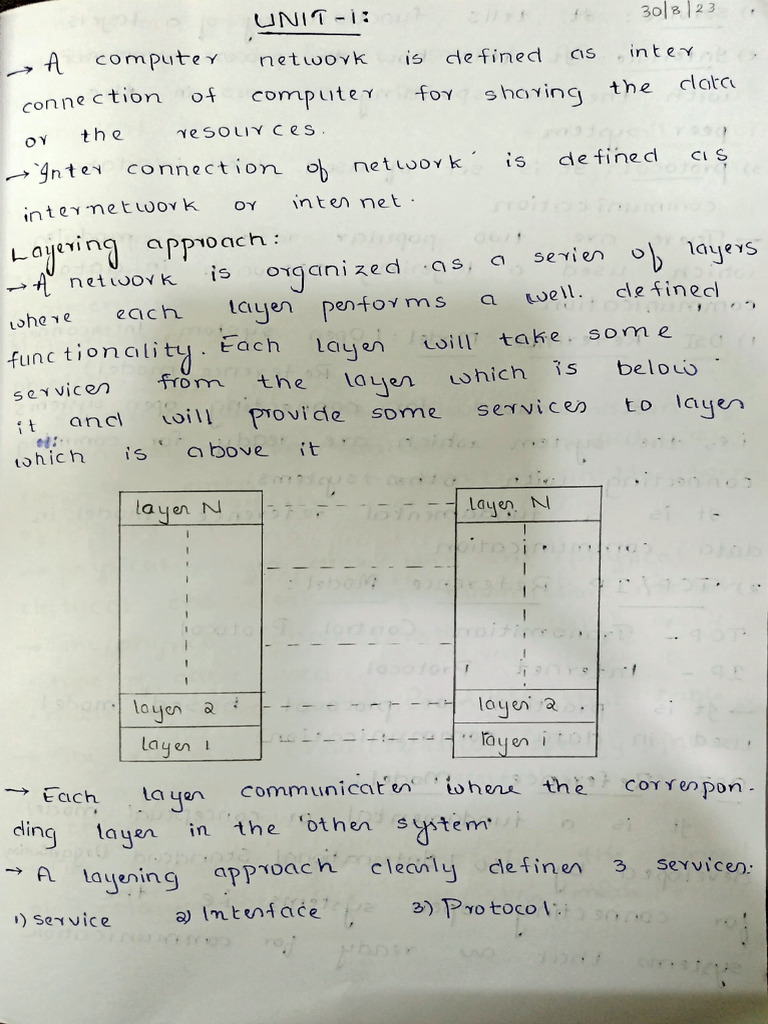 UNIT-1:
30/8/23
→ A computer network is defined as inter
connection of computer for sharing the data
or the resources.
→ 'Inter connection of network' is defined as
internetwork or internet.
Layering approach:
→ A network is organized as a series of layers
where each layer performs a well defined
functionality. Each layer will take some
services from the layer which is below
it and will provide some services to layer
which is above it
layer N layer N
layer 2 layer 2
layer 1 layer 1
→ Each layer communicates where the correspon-
ding layer in the other system
→ A layering approach clearly defines 3 services:
1) service 2) Interface 3) Protocol.